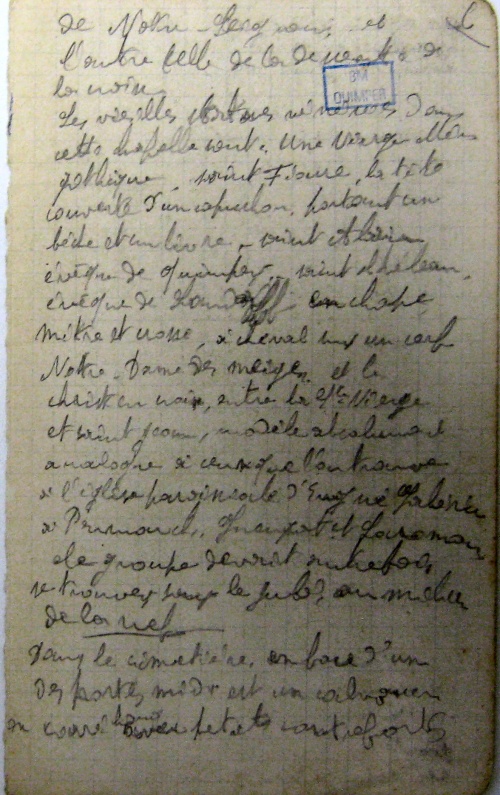 de Notre-Seigneur, et
l'autre celle de la descente de
la croix.
BM
QUIMPER
Les vieilles statues vénérées dans
cette chapelle sont: Une Vierge Mère
gothique, saint Fiacre, la tête
couverte d'un capuchon, portant un
bêche et un livre, saint Alain
évêque de Quimper, saint Théleau,
évêque de en chape
mitre et crosse, à cheval sur un cerf
Notre-Dame des neiges, et le
christ en croix, entre la Ste Vierge
et saint Jean, modèle absolument
analogue à ceux que l'on trouve
à l'église paroissiale d'Ergué Gabéric
à Penmarch,
Ce groupe devait autrefois
se trouver sous le jubé, au milieu
de la nef
Dans le cimetière, en face d'un
des portes midi est un calvaire
en carré petits contreforts